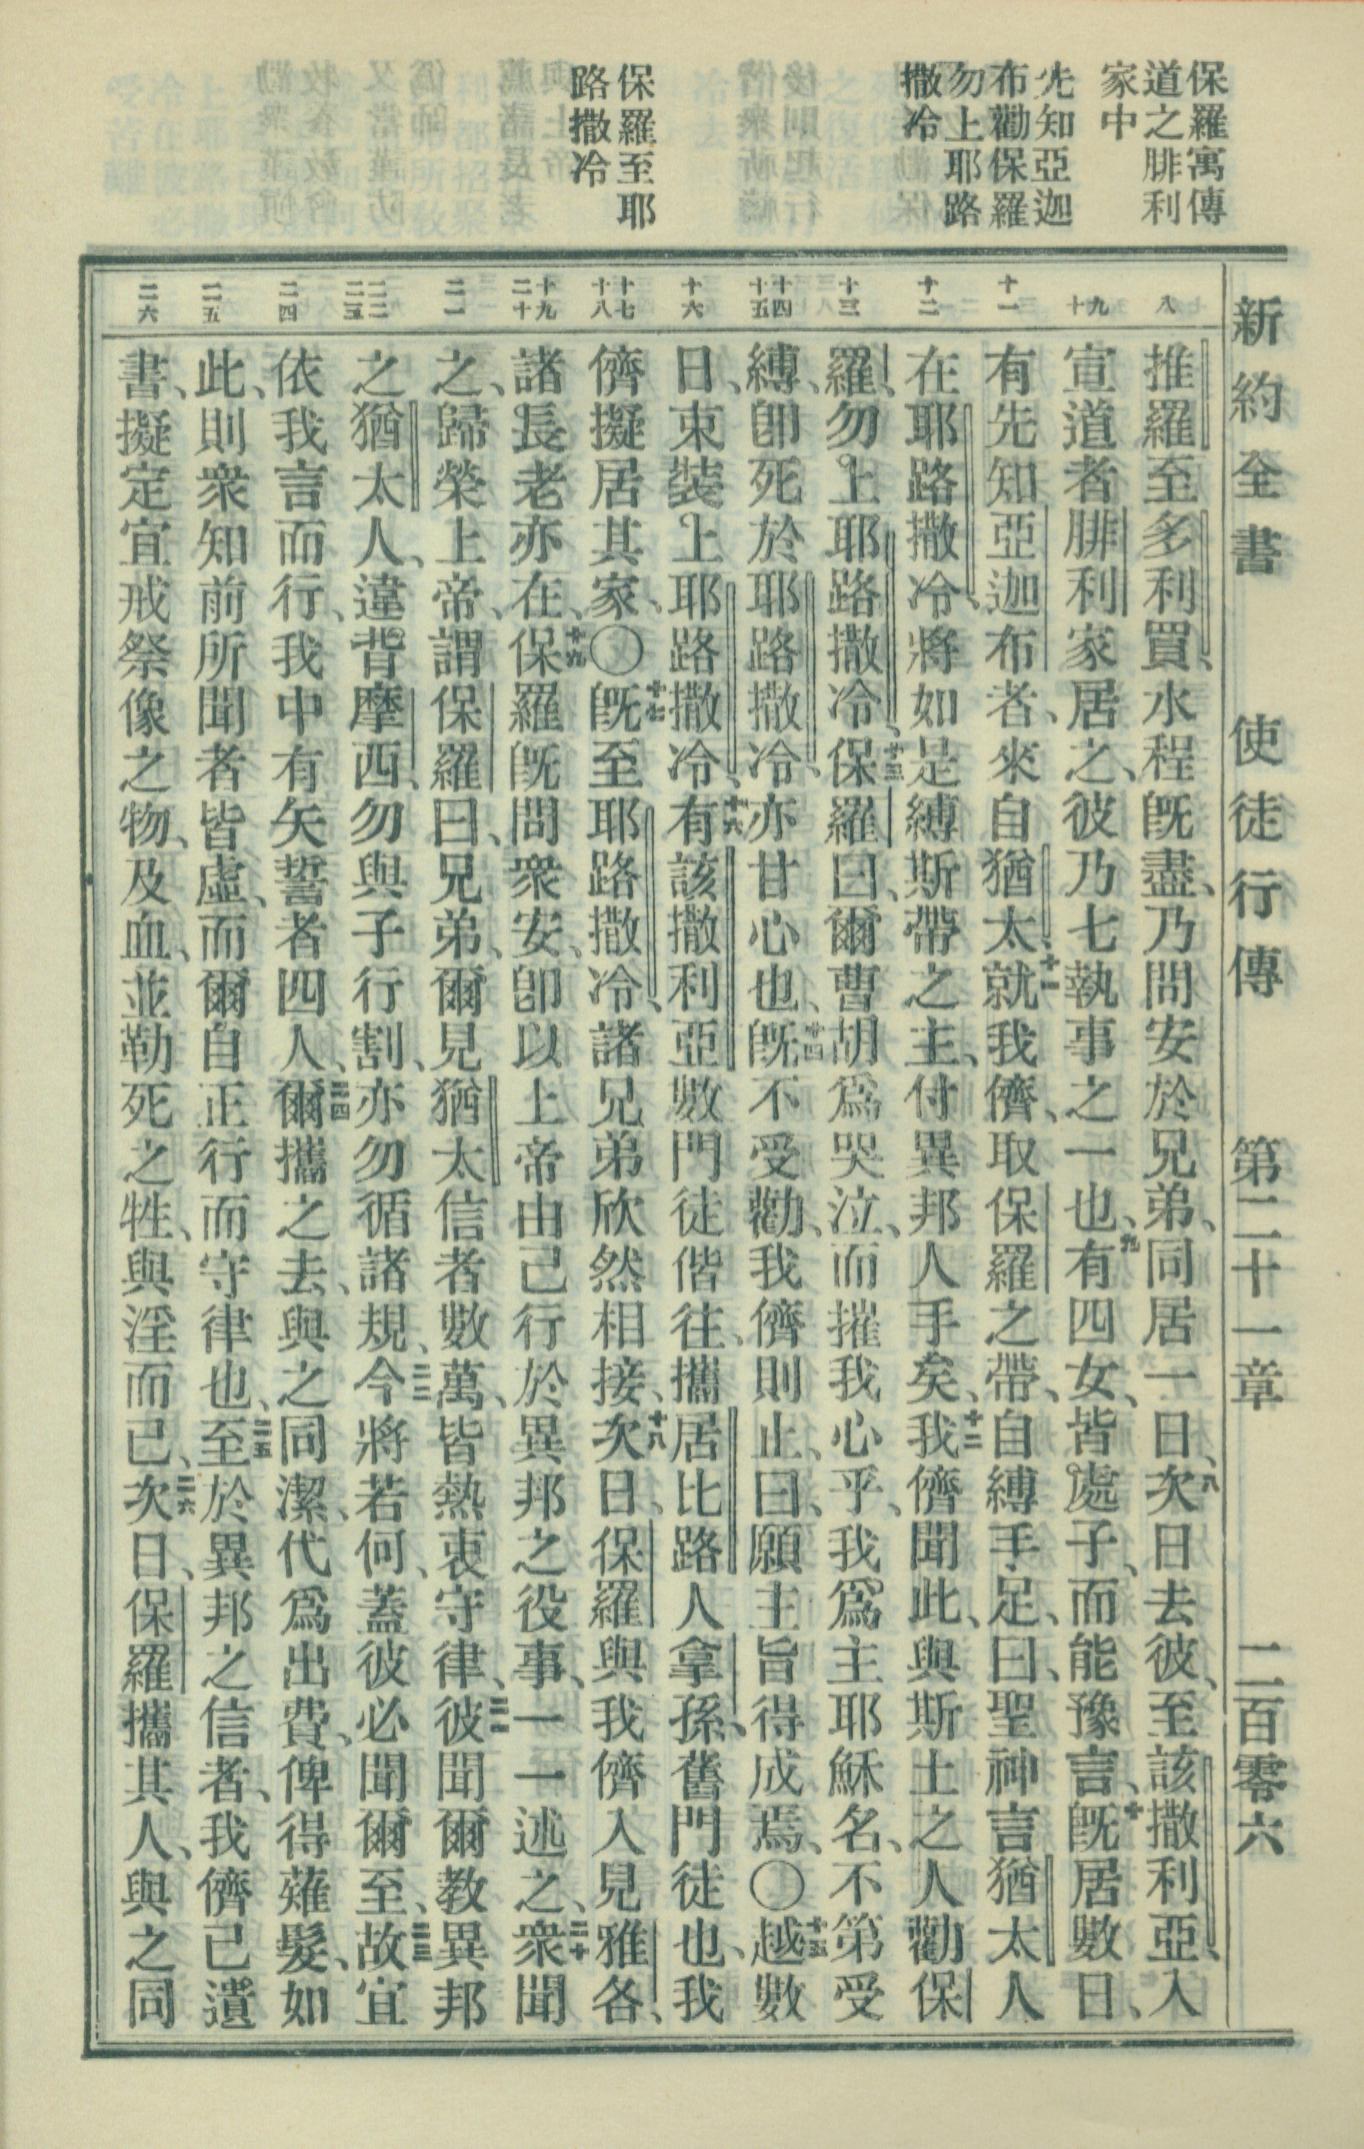 新約全書 使徒行傳 第二十一章 二百零六
保羅寓傳
道之腓利
家中
先知亞迦
布勸保羅
勿上耶路
撒冷
保羅至耶
路撒冷
八
九
十
十一
十二
十三
十四
十五
十六
十七
十八
十九
二十
二一
二二
二三
二四
二五
二六
推羅至多利買、水程既盡、乃問安於兄弟、同居一日、八次日去彼、至該撒利亞、入
宣道者腓利家居之、彼乃七執事之一也、九有四女、皆處子、而能豫言、十既居數日、
有先知亞迦布者、來自猶太、十一就我儕、取保羅之帶、自縛手足、曰、聖神言猶太人
在耶路撒冷、將如是縛斯帶之主、付異邦人手矣、十二我儕聞此、與斯土之人勸保
羅、勿上耶路撒冷、十三保羅曰、爾曹胡爲哭泣、而摧我心乎、我爲主耶穌名、不第受
縛、卽死於耶路撒冷、亦甘心也、十四既不受勸、我儕則止、曰、願主旨得成焉、〇十五越數
日、束裝上耶路撒冷、十六有該撒利亞數門徒偕往、攜居比路人拿孫、舊門徒也、我
儕擬居其家、〇十七既至耶路撒冷、諸兄弟欣然相接、十八次日、保羅與我儕入見雅各、
諸長老亦在、十九保羅既問衆安、卽以上帝由己行於異邦之役事、一一述之、二十衆聞
之、歸榮上帝、謂保羅曰、兄弟、爾見猶太信者數萬、皆熱衷守律、二一彼聞爾教異邦
之猶太人、違背摩西、勿與子行割、亦勿循諸規、二二今將若何、蓋彼必聞爾至、二三故宜
依我言而行、我中有矢誓者四人、二四爾攜之去、與之同潔、代爲出費、俾得薙髮、如
此、則衆知前所聞者皆虛、而爾自正行而守律也、二五至於異邦之信者、我儕已遺
書、擬定宜戒祭像之物、及血、並勒死之牲、與淫而已、二六次日、保羅攜其人、與之同